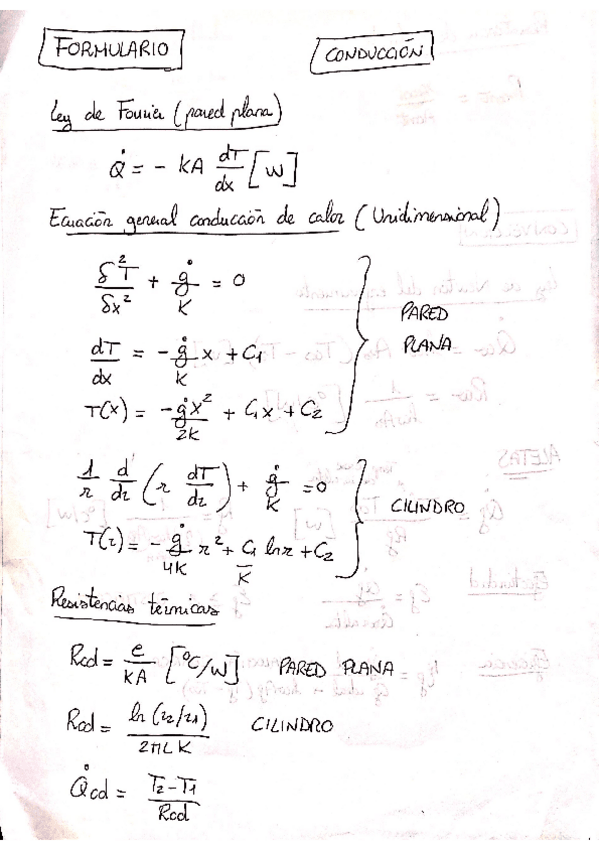 FORMULARIO
CONDUCCIÓN
Ley de Fourier (pared plana)
Q̇ = - KA dT/dx [W]
Ecuación general conducción de calor (Unidimensional)
δ²T/δx² + ġ/K = 0
dT/dx = - ġ/K x + C₁
T(x) = -ġx²/2K + C₁x + C₂
PARED
PLANA
1/r d/dr (r dT/dr) + ġ/K = 0
T(r) = - ġ/4K r² + C₁/K ln r + C₂
CILINDRO
Resistencias térmicas
Rcd = e/KA [°C/W] PARED PLANA
Rcd = ln (r₂/r₁)/2πLK CILINDRO
Q̇cd = T₂-T₁/Rcd